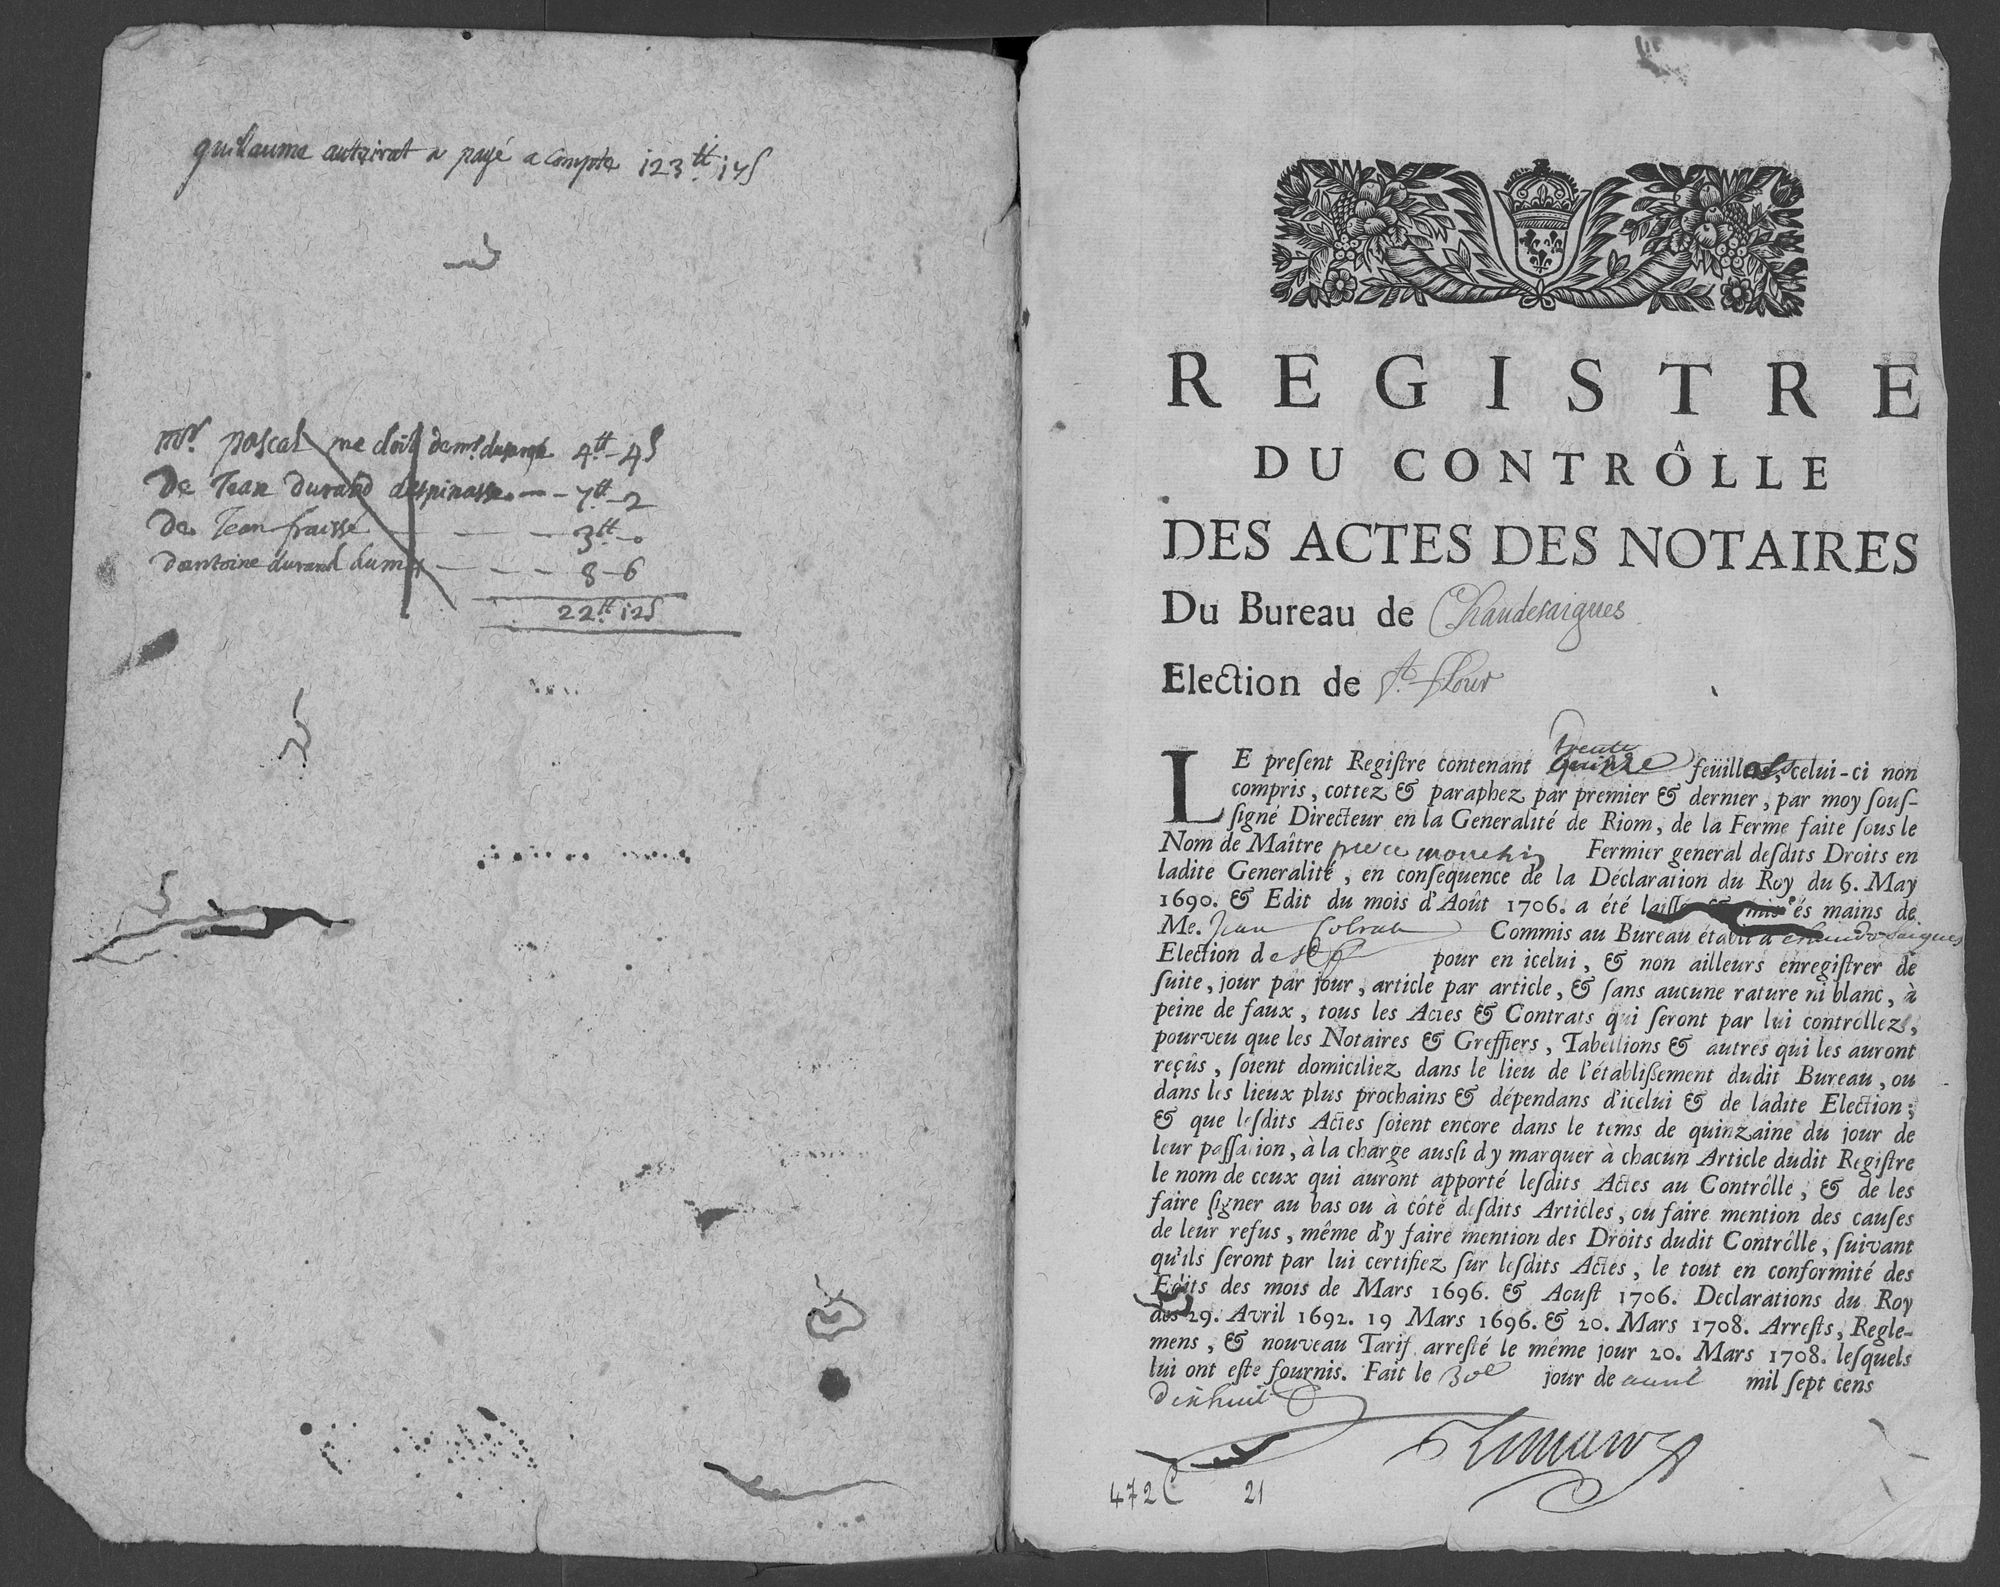 guillaume autzirat a payé a compte 123ₜₜ 17ſ
mr. pascal me doit de mr.
De Jean durand despinasse. — - 7tt - 2
de Jean fraissé — — — - 3tt - o
dantoine durand — — — 8 - 6
22tt 12ſ
REGISTRE
DU CONTRÔLLE
DES ACTES DES NOTAIRES
Du Bureau de Chaudesaigues
Election de St. flour
trente
LE preſent Regiſtre contenant quinze feüillets, celui-ci non
compris, cottez & paraphez par premier & dernier, par moy ſouſ-
ſigné Directeur en la Generalité de Riom, de la Ferme faite ſous le
Nom de Maître Fermier general deſdits Droits en
ladite Generalité, en conſequence de la Déclaration du Roy du 6. May
1690. & Edit du mois d'Août 1706. a été laiſſé & mis és mains de
Me. Jean Commis au Bureau établi à chaudesaigues
Election de St f pour en icelui, & non ailleurs enregiſtrer de
ſuite, jour par jour, article par article, & ſans aucune rature ni blanc, à
peine de faux, tous les Actes & Contrats qui ſeront par lui controllez,
pourveu que les Notaires & Greffiers, Tabellions & autres qui les auront
reçûs, ſoient domiciliez dans le lieu de l'établiſſement dudit Bureau, ou
dans les lieux plus prochains & dépendans d'icelui & de ladite Election;
& que leſdits Actes ſoient encore dans le tems de quinzaine du jour de
leur paſſation, à la charge auſſi d'y marquer à chacun Article dudit Regiſtre
le nom de ceux qui auront apporté leſdits Actes au Contrôlle, & de les
faire ſigner au bas ou à côté deſdits Articles, ou faire mention des cauſes
de leur refus, même d'y faire mention des Droits dudit Contrôlle, ſuivant
qu'ils ſeront par lui certifiez ſur leſdits Actes, le tout en conformité des
Edits des mois de Mars 1696. & Aouſt 1706. Declarations du Roy
des 29. Avril 1692. 19 Mars 1696. & 20. Mars 1708. Arreſts, Regle-
mens, & nouveau Tarif arreſté le même jour 20. Mars 1708. leſquels
lui ont eſte fournis. Fait le 30e jour de avril mil ſept cens
dixhuit
472 C 21